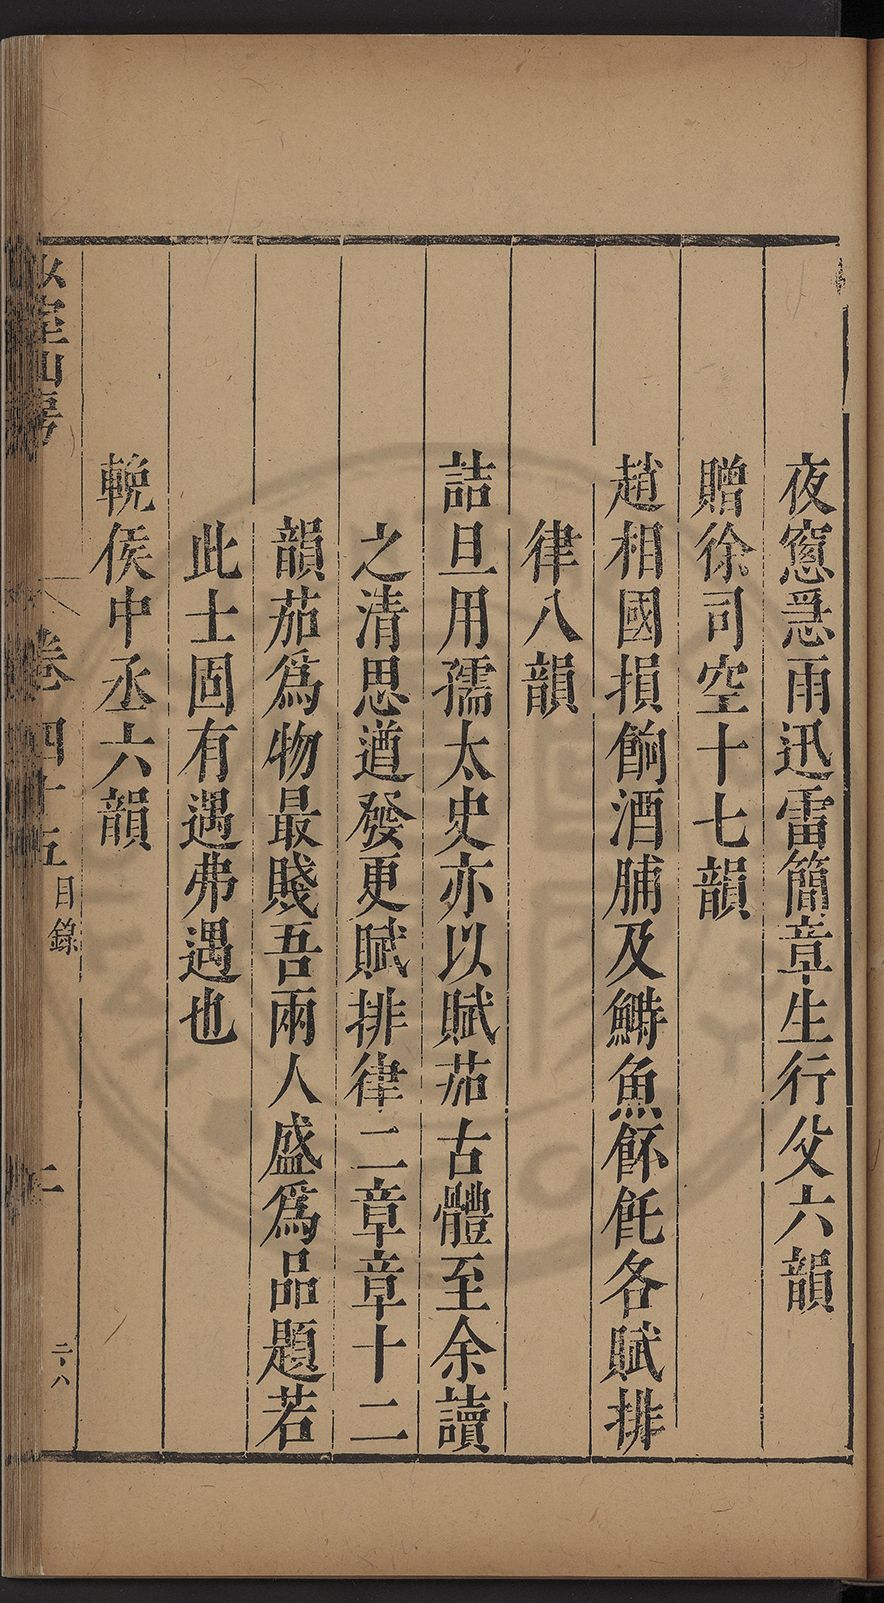 夜窻惡雨迅雷簡章生行父六韻
贈徐司空十七韻
趙相國損餉酒脯及鰣魚䬩飥各賦排
律八韻
詰旦用孺太史亦以賦茄古體至余讀
之清思遒發更賦排律二章章十二
韻茄爲物最賤吾兩人盛爲品題若
此士固有遇弗遇也
輓侯中丞六韻
山房
卷四十五
目錄
二
二八